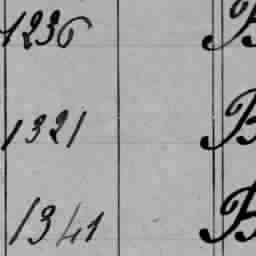 1236 B
1321 B
1341 B